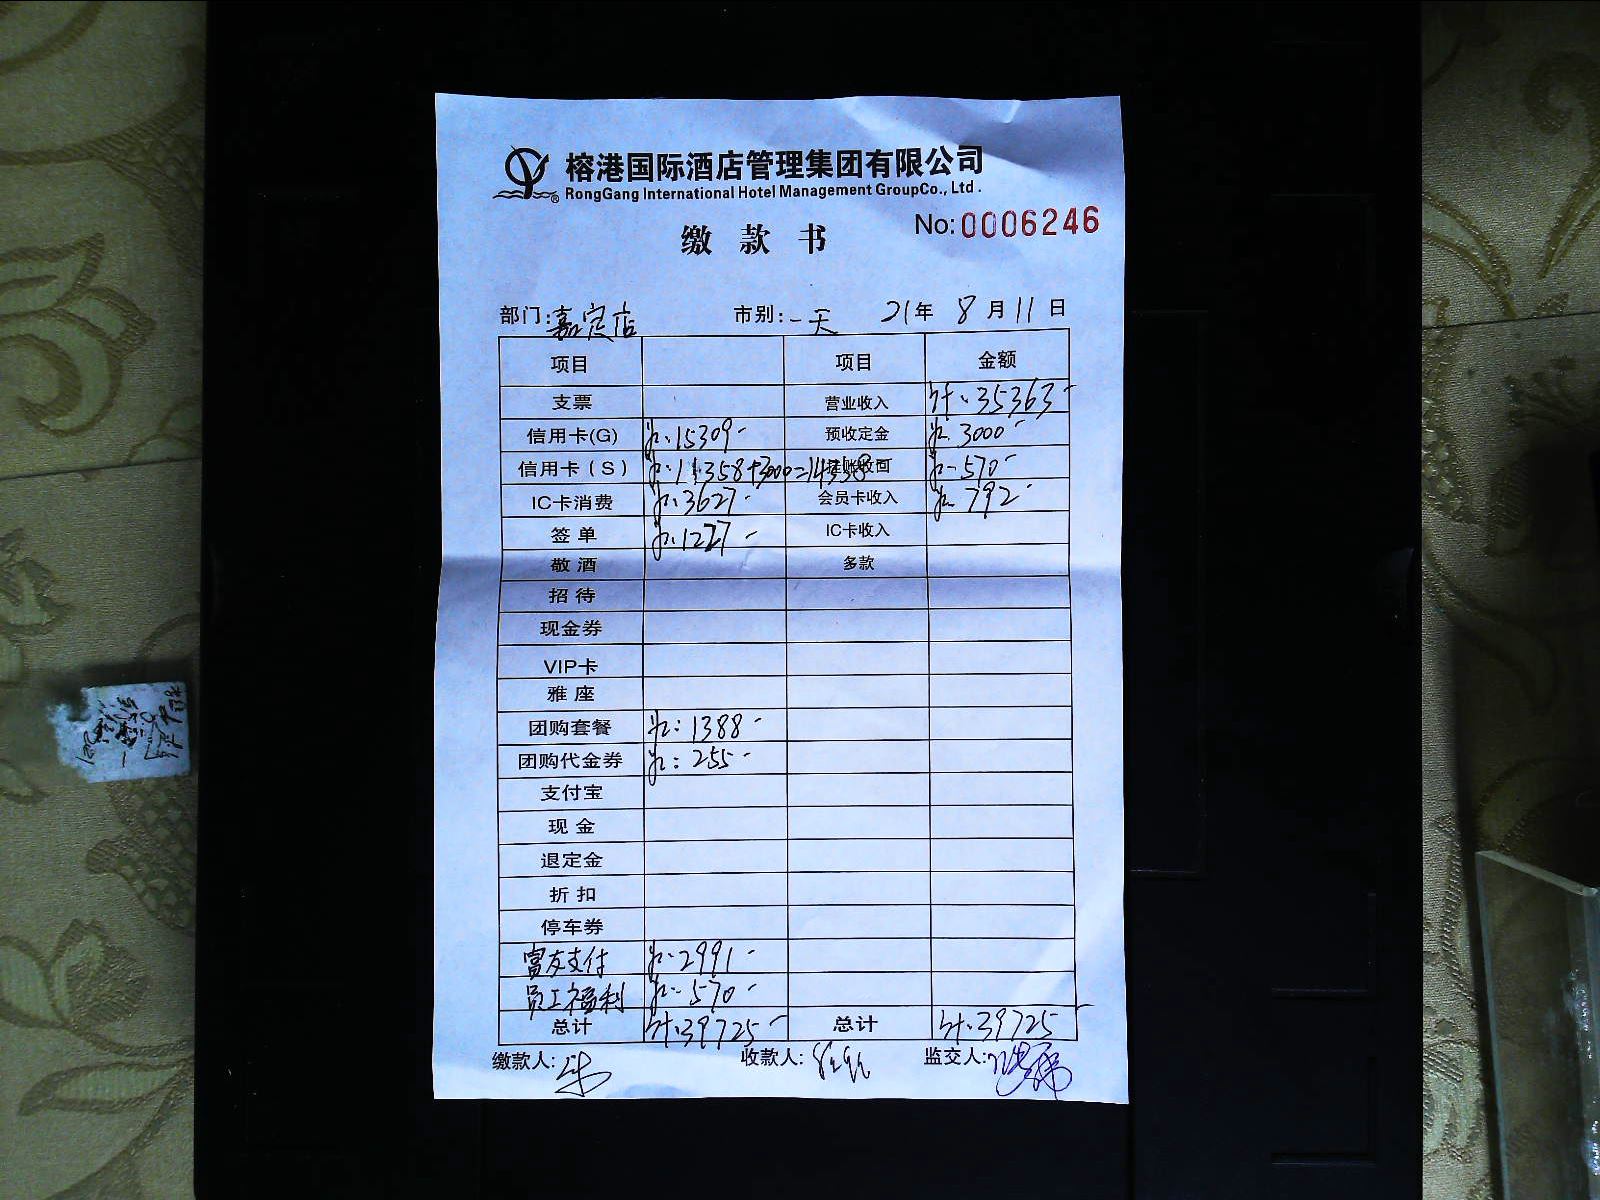 榕港国际酒店管理集团有限公司
RongGang International Hotel Management GroupCo., Ltd.
缴款书 No:0006246
部门:嘉定店 市别:一天 21年 8月11日
项目 项目 金额
支票 营业收入 计:35363-
信用卡(G) 15309- 预收定金 3000-
信用卡(S) 11358+3000=14358- 挂账收回 570-
IC卡消费 3627- 会员卡收入 792-
签单 1227- IC卡收入
敬酒 多款
招待
现金券
VIP卡
雅座
团购套餐 1388-
团购代金券 255-
支付宝
现金
退定金
折扣
停车券
富友支付 2991-
员工福利 570-
总计 计:39725- 总计 计:39725-
缴款人: 收款人: 监交人: